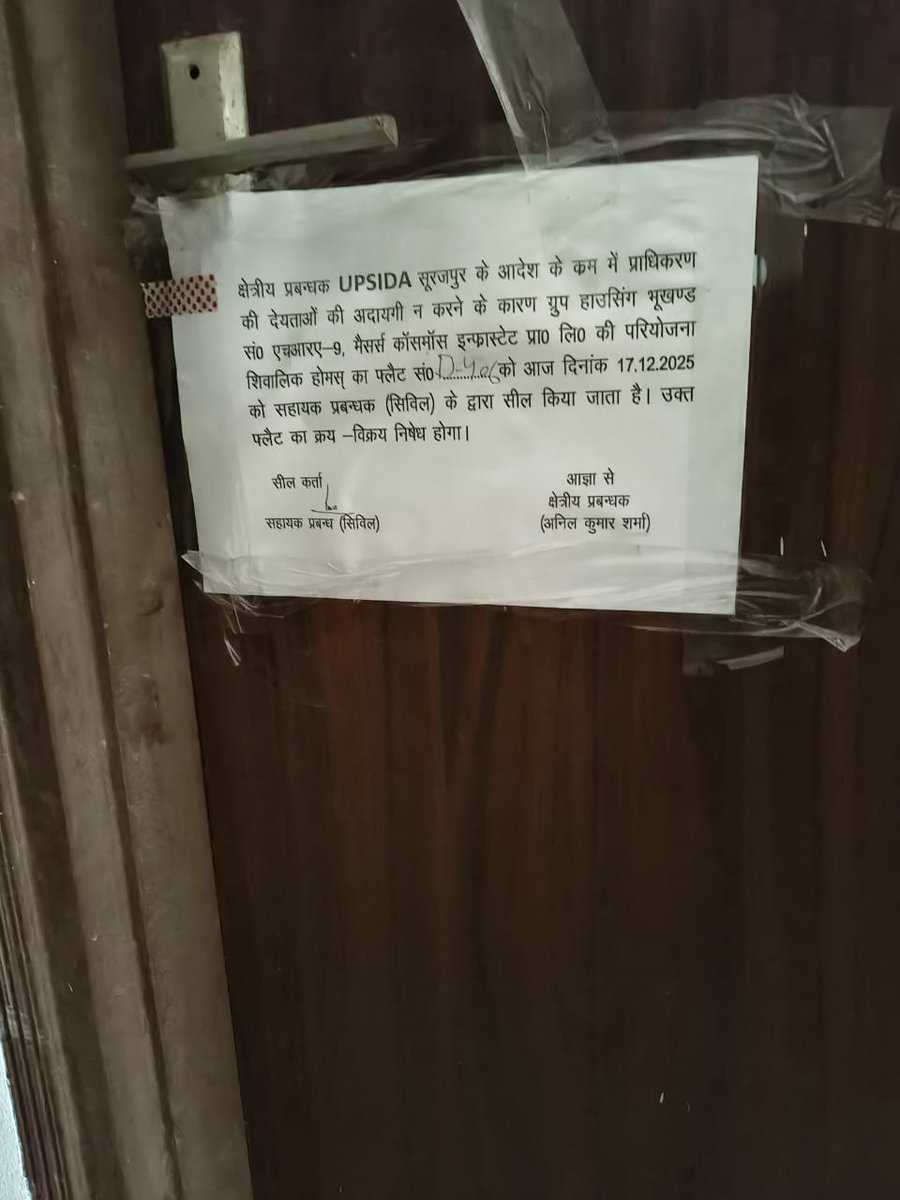 क्षेत्रीय प्रबन्धक UPSIDA सूरजपुर के आदेश के कम में प्राधिकरण
की देयताओं की अदायगी न करने के कारण ग्रुप हाउसिंग भूखण्ड
सं0 एचआरए–9, मैसर्स कॉसमॉस इन्फ्रास्टेट प्रा0 लि0 की परियोजना
शिवालिक होमस् का फ्लैट सं0 D-406 को आज दिनांक 17.12.2025
को सहायक प्रबन्धक (सिविल) के द्वारा सील किया जाता है। उक्त
फ्लैट का क्रय –विक्रय निषेध होगा।
सील कर्ता
सहायक प्रबन्ध (सिविल)
आज्ञा से
क्षेत्रीय प्रबन्धक
(अनिल कुमार शर्मा)